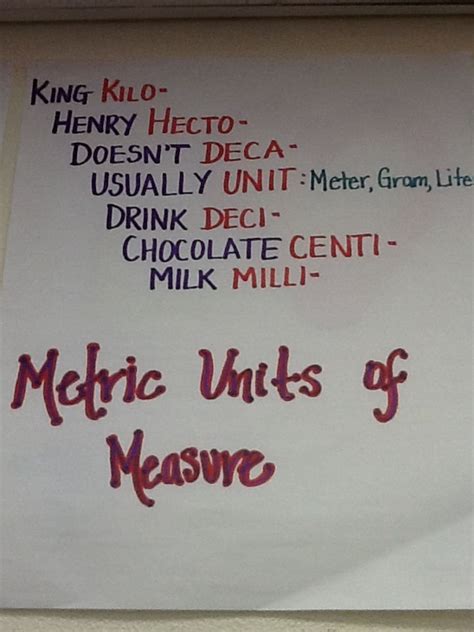 KING KILO-
HENRY HECTO-
DOESN'T DECA-
USUALLY UNIT: Meter, Gram, Lite
DRINK DECI-
CHOCOLATE CENTI-
MILK MILLI-
Metric Units of
Measure